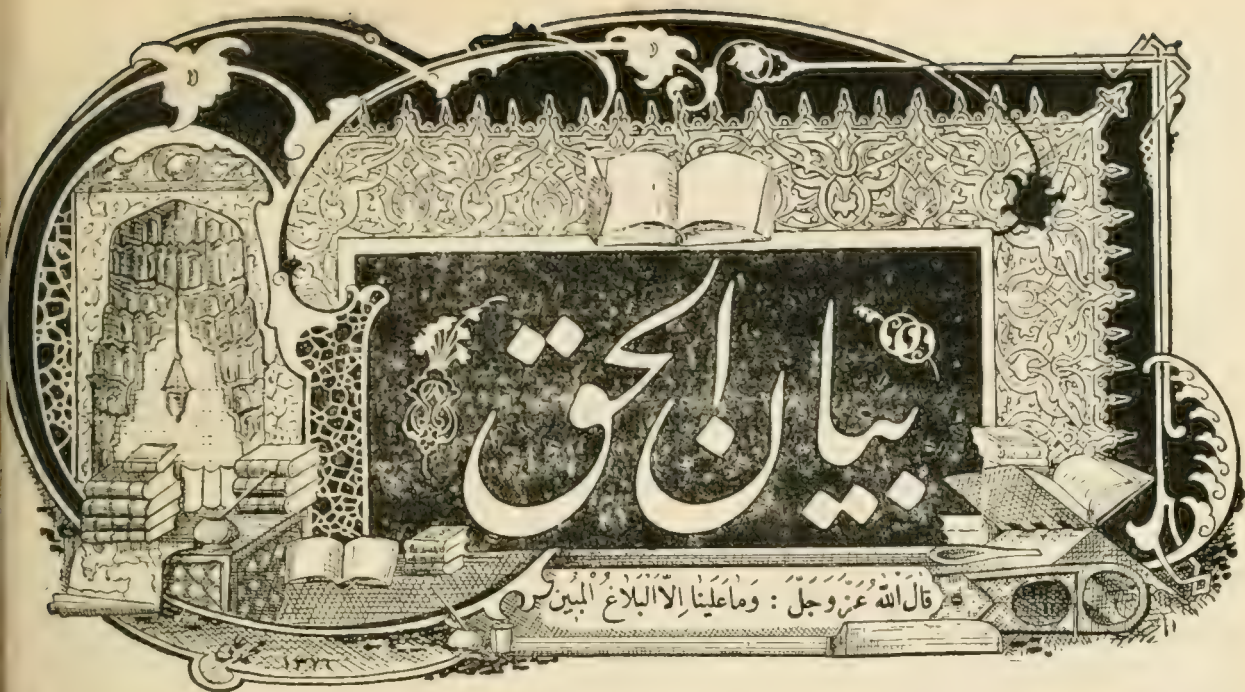 بيان الحق
قَالَ اللهُ عَزَّ وَجَلَّ : وَمَا عَلَينَا اِلَّا الْبَلَاغُ الْمُبِينُ
١٣٢٦